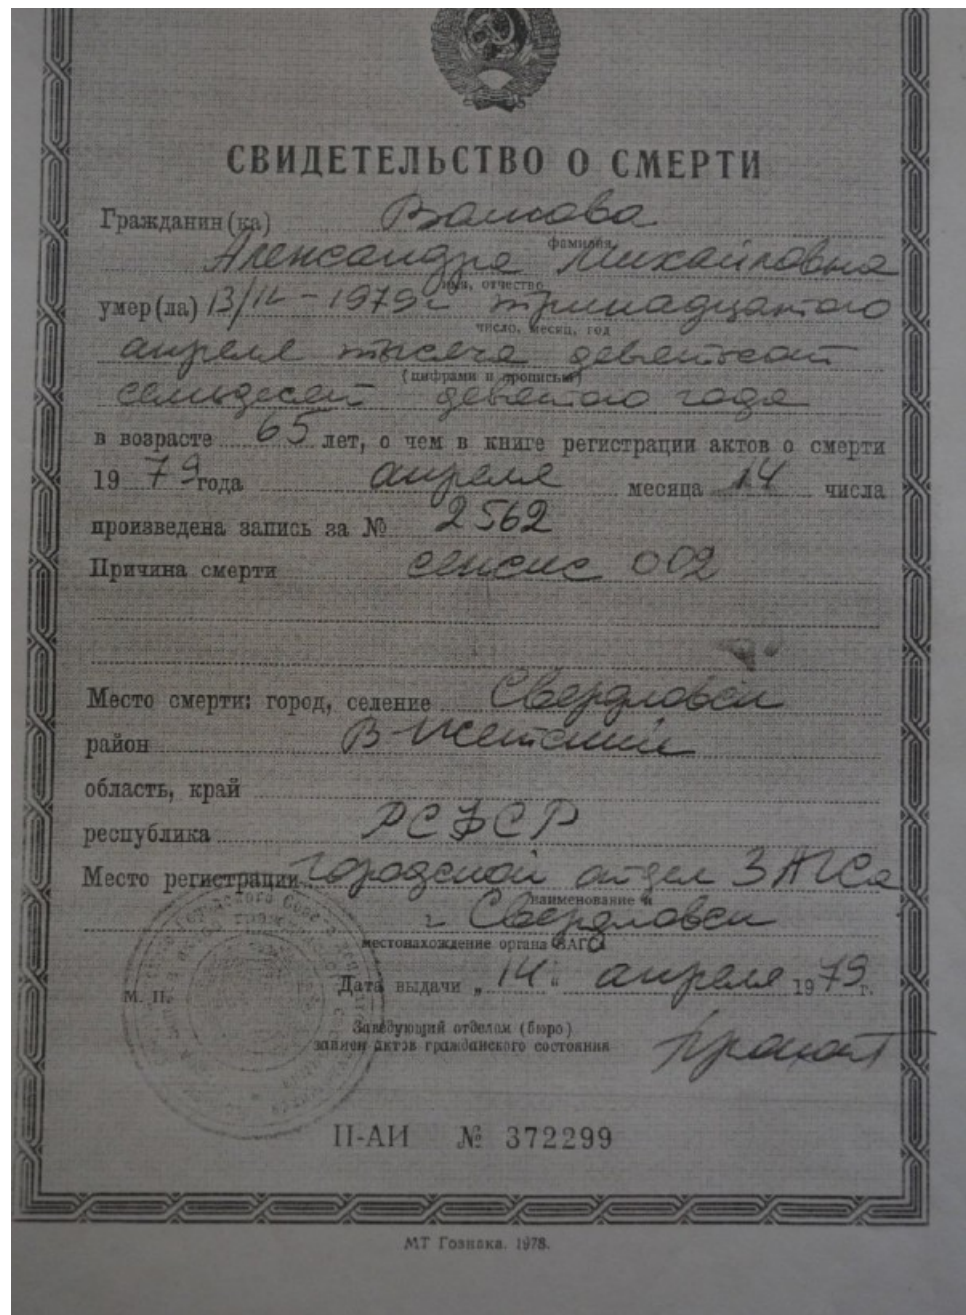 СВИДЕТЕЛЬСТВО О СМЕРТИ
Гражданин(ка) Волкова
фамилия
Александра Михайловна
имя, отчество
умер(ла) 13/IV - 1979г тринадцатого
число, месяц, год
апреля тысяча девятьсот
(цифрами и прописью)
семьдесят девятого года
в возрасте 65 лет, о чем в книге регистрации актов о смерти
19 79 года апреля месяца 14 числа
произведена запись за № 2562
Причина смерти сепсис 002
Место смерти: город, селение Свердловск
район В-Исетский
область, край
республика РСФСР
Место регистрации городской отдел ЗАГСа
наименование и
г Свердловск
местонахождение органа ЗАГСа
М. П. Дата выдачи „ 14 " апреля 19 79 г.
Заведующий отделом (бюро)
записи актов гражданского состояния
II-АИ № 372299
МТ Гознака. 1978.